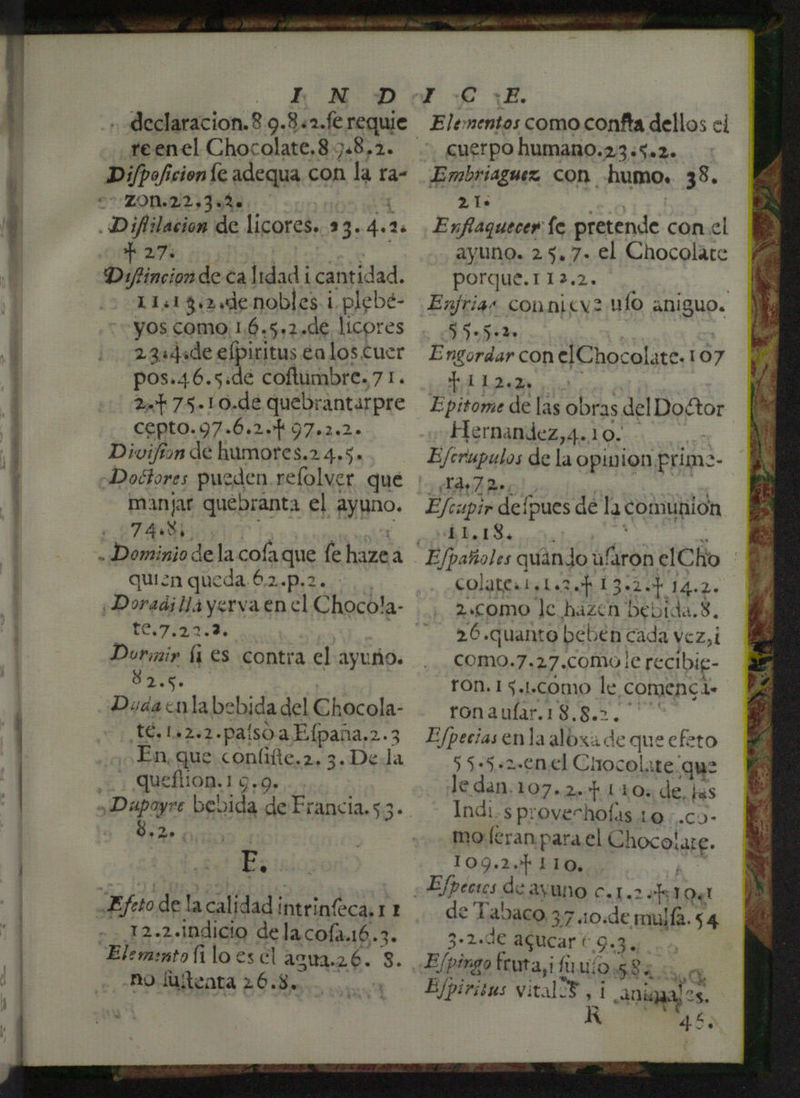 I N D I C E.
declaracion. 8 9.8.2.ſe requie
re en el Chocolate. 8 9.8.2.
Diſpoſicion ſe adequa con la ra-
zon.22.3.2.
Diſtilacion de licores. 23.4.2.
† 27.
Diſtincion de calidad i cantidad.
11.13.2.de nobles i plebe-
yos como 16.5.2.de licores
23.4.de eſpiritus en los cuer
pos.46.5.de coſtumbre.71.
2.† 75.10.de quebrantar pre
cepto.97.6.2.† 97.2.2.
Diviſion de humores.24.5.
Doctores pueden reſolver que
manjar quebranta el ayuno.
74.8.
Dominio de la coſa que ſe haze a
quien queda.62.p.2.
Doradilla yerva en el Chocola-
te.7.22.2.
Dormir ſi es contra el ayuno.
82.5.
Duda en la bebida del Chocola-
te.1.2.2.paſsò a Eſpaña.2.3
En que conſiſte.2.3.De la
queſtion.19.9.
Dupoyre bebida de Francia.53.
8.2.
E.
Efeto de la calidad intrinſeca.11
12.2.indicio de la coſa.16.3.
Elemento ſi lo es el agua.26. 8.
no ſuſtenta 26.8.
Elementos como conſta dellos el
cuerpo humano.23.5.2.
Embriaguez con humo. 38.
21.
Enflaquecer ſe pretende con el
ayuno. 25.7. el Chocolate
porque.112.2.
Enfriar con nieve uſo antiguo.
55.5.2.
Engordar con el Chocolate.107
† 112.2.
Epitome de las obras del Doctor
Hernandez,4.10.
Eſcrupulos de la opinion prime-
ra.72.
Eſcupir deſpues de la comunion
11.18.
Eſpañoles quando uſaron el Cho
colate.1.1.2.† 13.2.† 14.2.
2.como le hazen bebida.8.
26.quanto beben cada vez,i
como.7.27.como le recibie-
ron.15.1.como le comença-
ron a uſar.18.8.2.
Eſpecias en la aloxa de que efeto
55.5.2.en el Chocolate que
le dan.107.2.† 110. de las
Indi s provechoſas 10 .co-
mo ſeran para el Chocolate.
109.2.† 110.
Eſpecies de ayuno c.1.2.† 10.1
de Tabaco 37.10.de mulſa.54
3.2.de açucar 69.3.
Eſpingo fruta,i ſu uſo.58.
Eſpiritus vitales, i animales.
R 46.